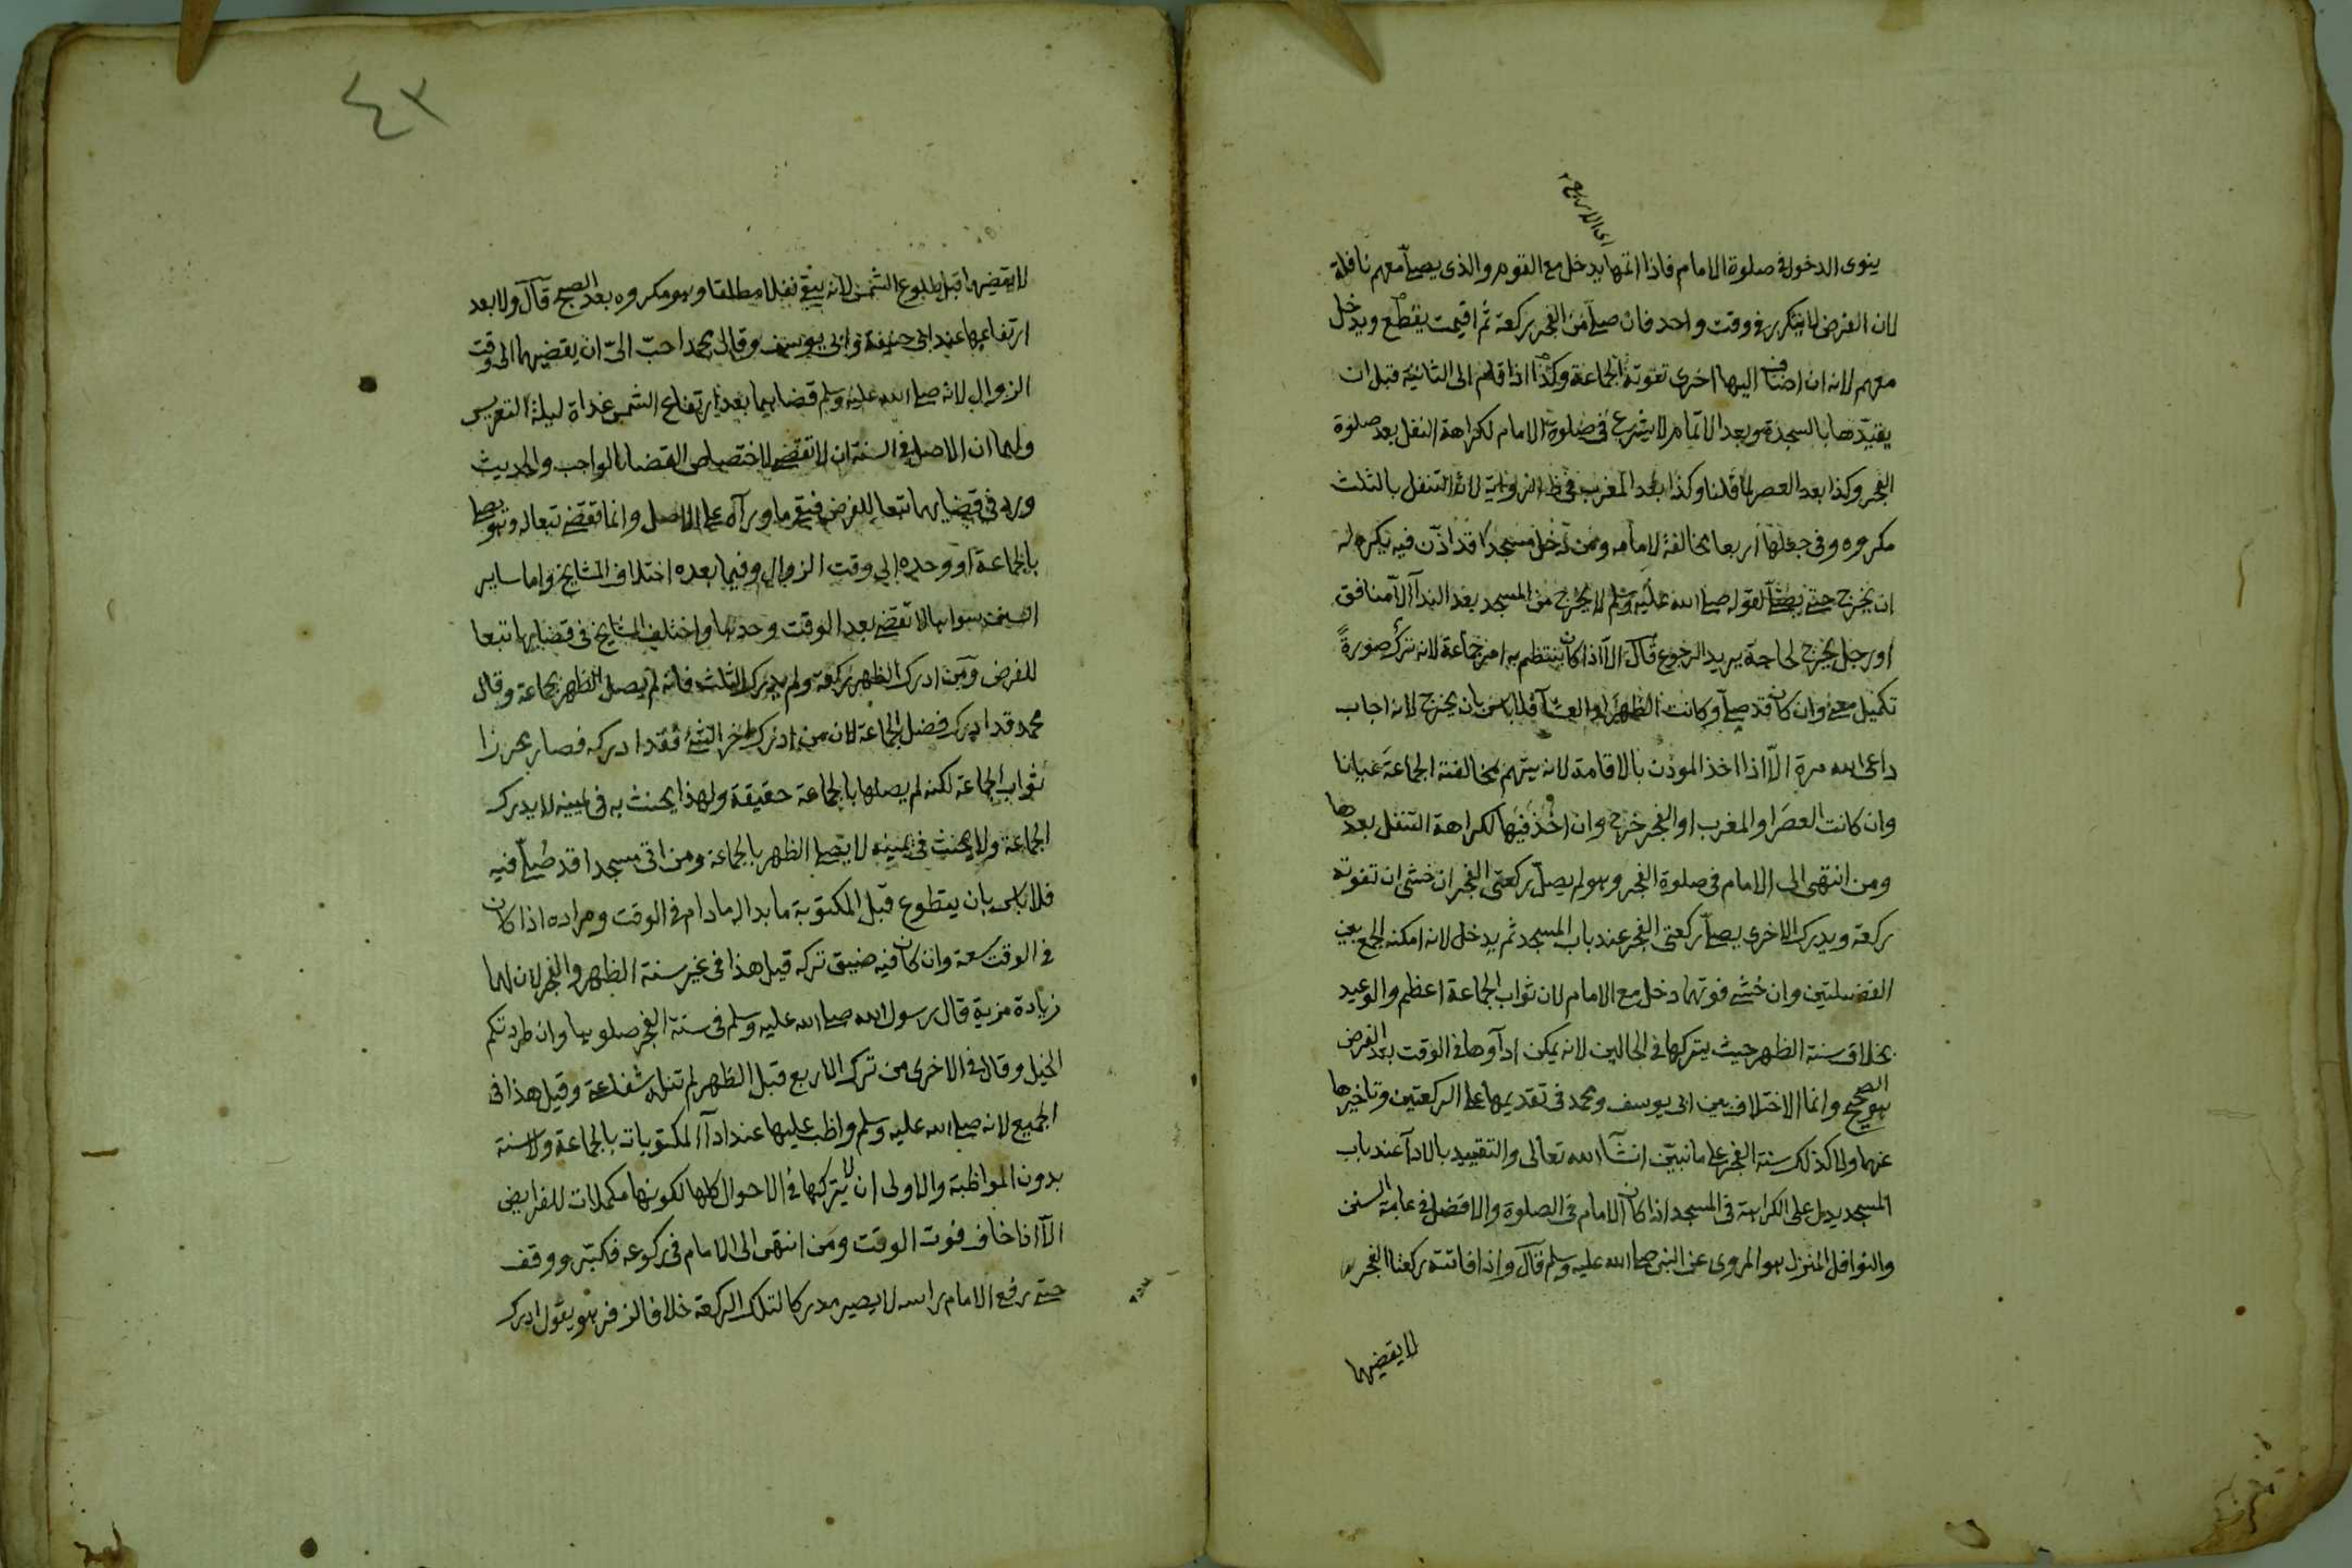 اى الاربع
ينوى الدخول فى صلوة الامام فاذا اتمها يدخل مع القوم والذى يصلى معهم نافلة
لان الفرض لا يتكرر فى وقت واحد فان صلى من الفجر ركعة ثم اقيمت يقطع ويدخل
معهم لانه ان اضاف اليها اخرى تفوته الجماعة وكذا اذا قام الى الثانية قبل ان
يقيدها بالسجدة وبعد الاتمام لا يشرع فى صلوة الامام لكراهة النفل بعد صلوة
الفجر وكذا بعد العصر لما قلنا وكذا بعد المغرب فى ظ الرواية لان التنفل بالثلث
مكروه وفى جعلها اربعا مخالفة لامامه ومن دخل مسجدا قد اذن فيه يكره له
ان يخرج حتى يصلى لقوله صلى الله عليه وسلم لا يخرج من المسجد بعد الندآ الا منافق
او رجل يخرج لحاجة يريد الرجوع قال الا اذا كان ينتظم به امر جماعة لانه ترك صورةً
تكميل معنى وان كان قد صلى وكانت الظهر او العشآ فلا باس بان يخرج لانه اجاب
داعى الله مرة الا اذا اخذ المؤذن بالاقامة لانه يتهم بمخالفة الجماعة عيانا
وان كانت العصر او المغرب او الفجر خرج وان اخذ فيها لكراهة التنفل بعدها
ومن انتهى الى الامام فى صلوة الفجر وهو لم يصل ركعتى الفجر ان خشى ان تفوته
ركعة ويدرك الاخرى يصلى ركعتى الفجر عند باب المسجد ثم يدخل لانه امكنه الجمع بين
الفضيلتين وان خشى فوتهما دخل مع الامام لان ثواب الجماعة اعظم والوعيد
بخلاف سنة الظهر حيث يتركها فى الحالين لانه يمكن ادآوها فى الوقت بعد الفرض
هو الصحيح وانما الاختلاف بين ابى يوسف ومحمد فى تقديمها على الركعتين وتاخيرها
عنهما ولا كذلك سنة الفجر على ما نبين انشآ الله تعالى والتقييد بالادآ عند باب
المسجد يدل على الكراهة فى المسجد اذا كان الامام فى الصلوة والافضل فى عامة السنن
والنوافل المنزل هو المروى عن النبى صلى الله عليه وسلم قال واذا فاتته ركعتا الفجر
لا يقضيهما
٤٢
لا يقضيهما قبل طلوع الشمس لانه يبقى نفلا مطلقا وهو مكروه بعد الصبح قال ولا بعد
ارتفاعها عند ابى حنيفة وابى يوسف وقال محمد احب الىّ ان يقضيهما الى وقت
الزوال لانه صلى الله عليه وسلم قضاهما بعد ارتفاع الشمس غداة ليلة التعريس
ولهما ان الاصل فى السنة ان لا تقضى لاختصاص القضا بالواجب والحديث
ورد فى قضايها تبعا للفرض فبقى ما ورآه على الاصل وانما تقضى تبعا له وهو يصلى
بالجماعة او وحده الى وقت الزوال وفيما بعده اختلاف المشايخ واما ساير
السنن سواهما لا تقضى بعد الوقت وحدها واختلف المشايخ فى قضايها تبعا
للفرض ومن ادرك الظهر ركعة ولم يدرك الثلث فانه لم يصل الظهر بجماعة وقال
محمد قد ادرك فضل الجماعة لان من ادرك اخر الشئ فقد ادركه فصار محرزا
ثواب الجماعة لكنه لم يصلها بالجماعة حقيقة ولهذا يحنث به فى يمينه لا يدرك
الجماعة ولا يحنث فى يمينه لا يصلى الظهر بالجماعة ومن اتى مسجدا قد صلى فيه
فلا باس بان يتطوع قبل المكتوبة ما بدا له ما دام فى الوقت ومراده اذا كان
فى الوقت سعة وان كان فيه ضيق تركه قيل هذا فى غير سنة الظهر والفجر لان لهما
زيادة مزية قال رسول الله صلى الله عليه وسلم فى سنة الفجر صلوها وان طردتكم
الخيل وقال فى الاخرى من ترك الاربع قبل الظهر لم تنله شفاعتى وقيل هذا فى
الجميع لانه صلى الله عليه وسلم واظب عليها عند ادآ المكتوبات بالجماعة ولا سنة
بدون المواظبة والاولى ان لا يتركها فى الاحوال كلها لكونها مكملات للفرايض
الا اذا خاف فوت الوقت ومن انتهى الى الامام فى ركوعه فكبر ووقف
حتى رفع الامام راسه لا يصير مدركا لتلك الركعة خلافا لزفر هو يقول ادرك